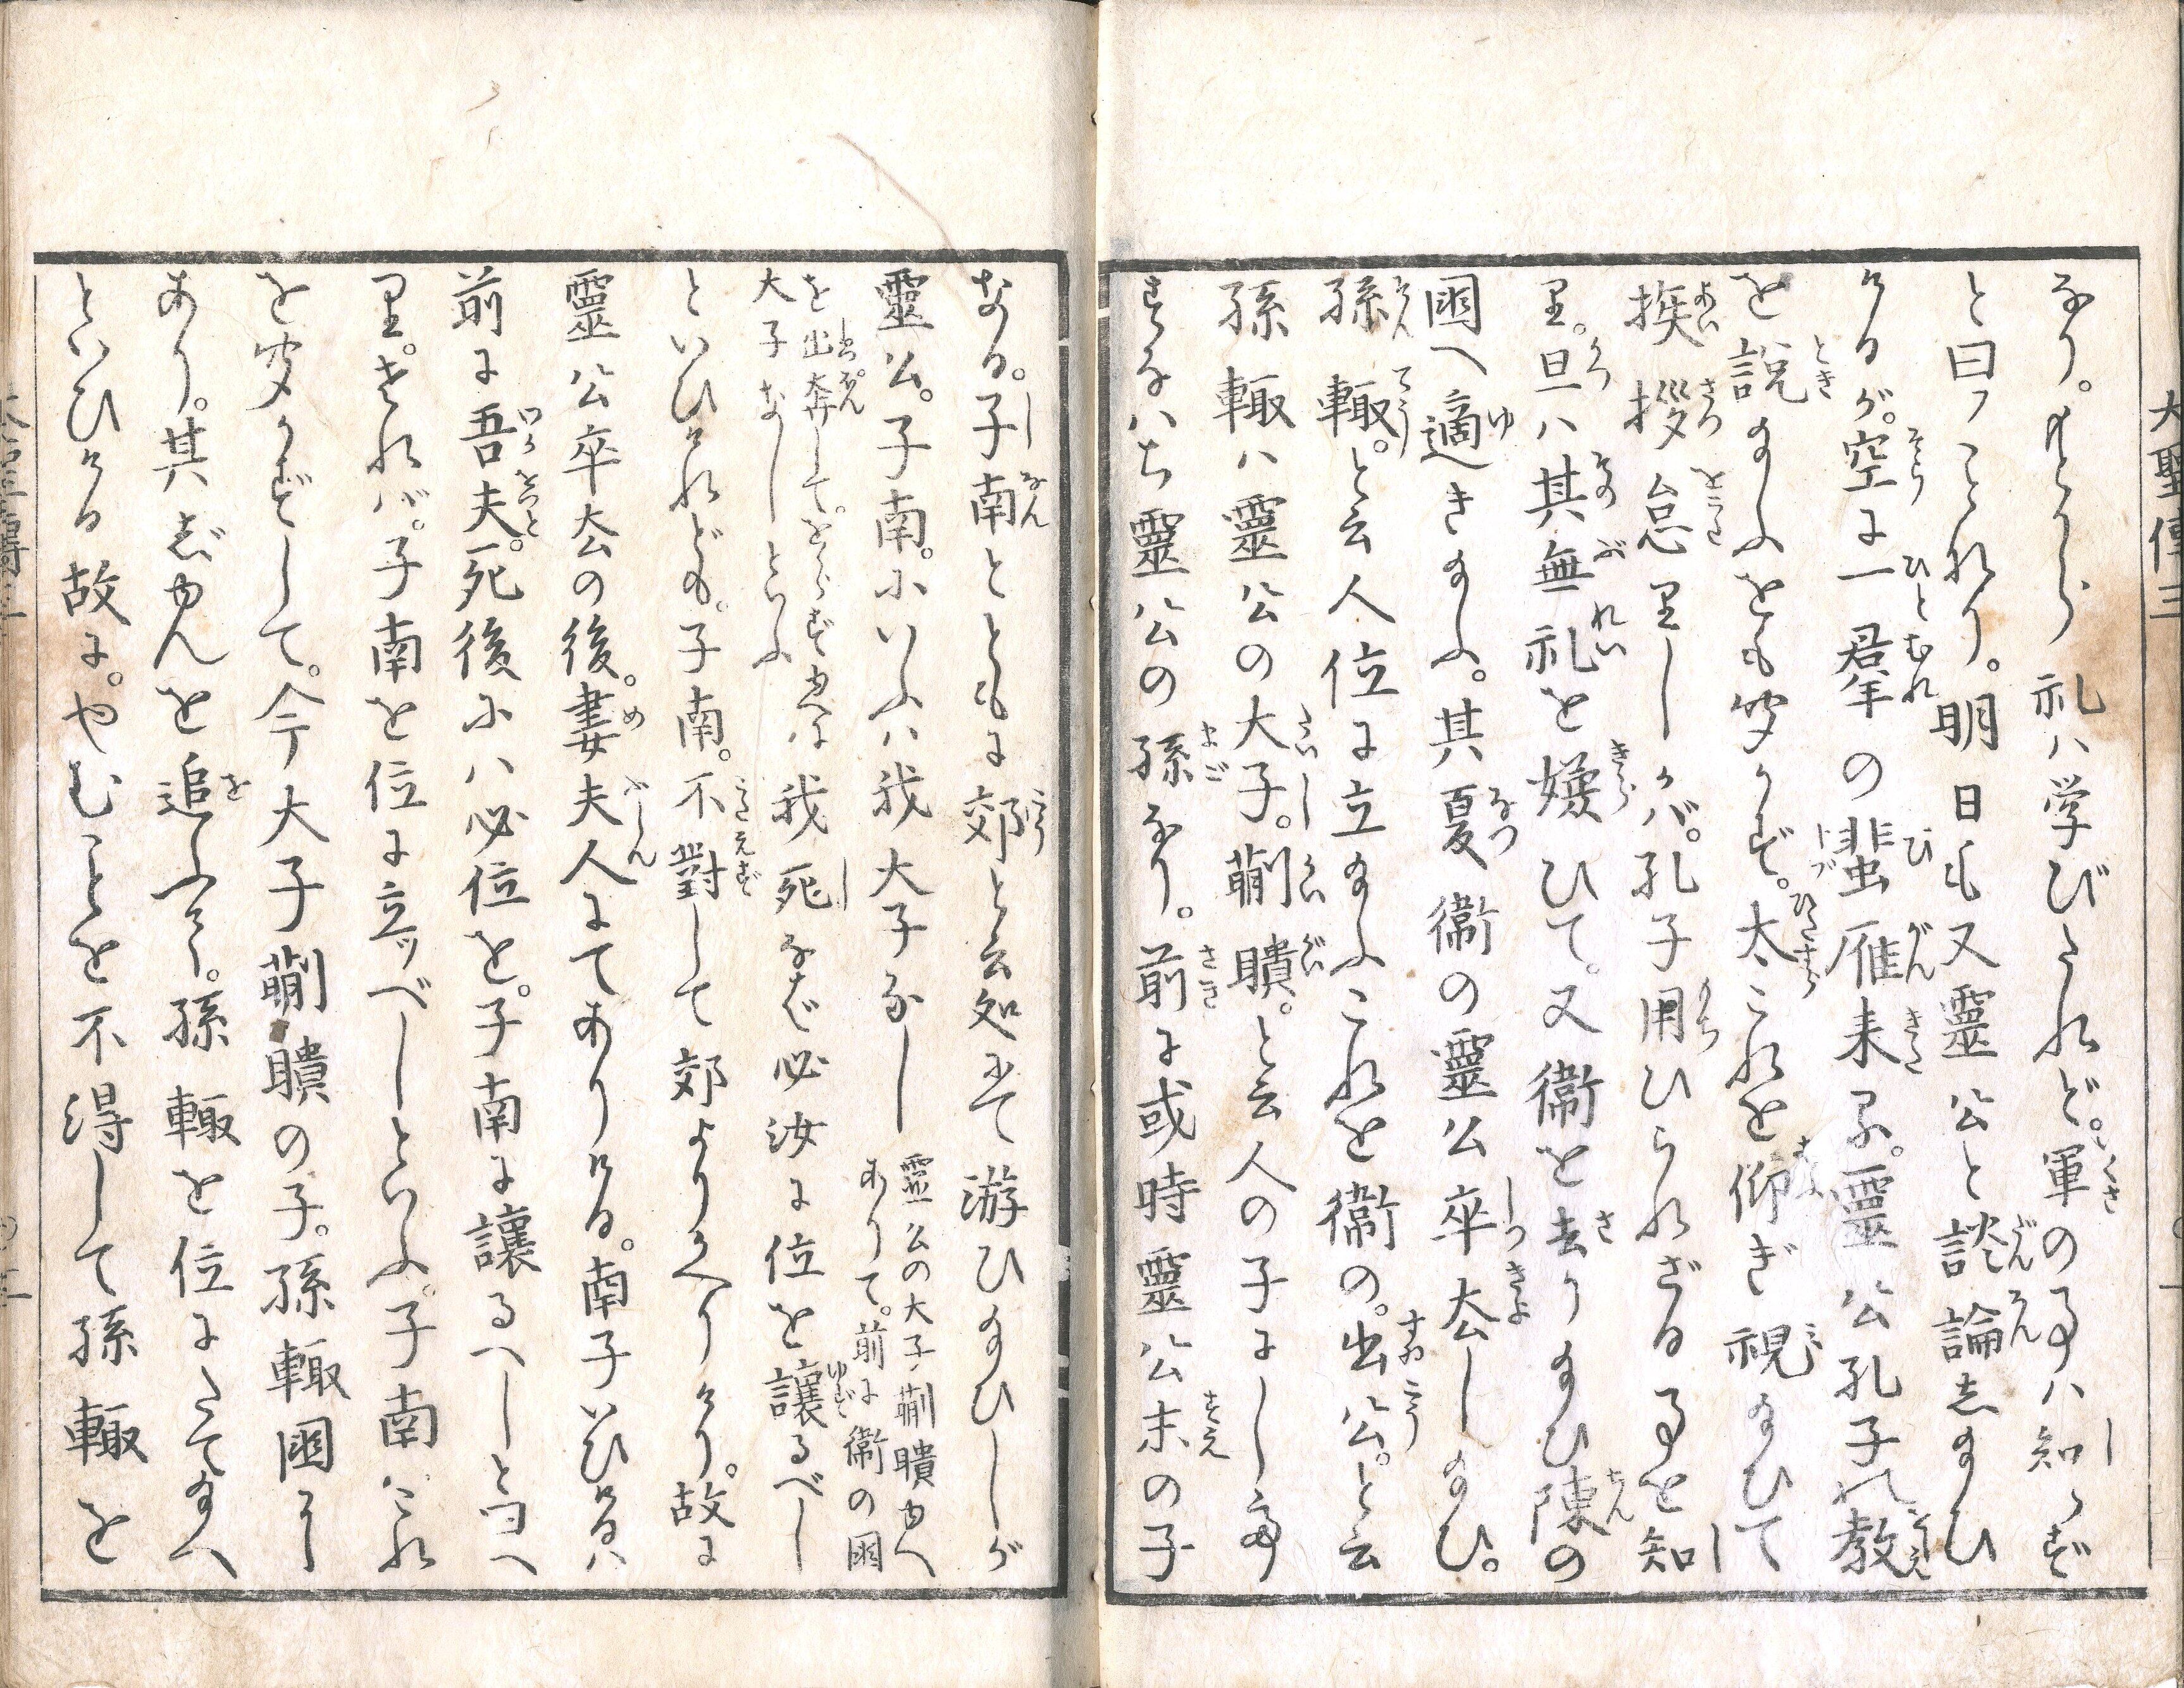 なり。もとより礼ハ学びたれど。軍の事ハ知らず
と曰フこれり。明日も又靈公と談論志給ひ
けるが。空に一羣の蜚雁来る。靈公孔子の教
を説給ふをも聞かず。太これを仰ぎ視給ひて
挨拶怠里しかバ。孔子用ひられざる事を知
里。旦ハ其無礼を嫌ひて。又衞を去り給ひ陳の
國へ適き給ふ。其夏衞の靈公卒去し給ひ。
孫輙。と云人位に立給ふこれを衞の。出公。と云
孫輙ハ靈公の大子。蒯聵。と云人の子にして
すなハち靈公の孫なり。前に或時靈公末の子
なる。子南とともに郊と云処にて游ひ給ひしが
靈公。子南。にいふハ我大子なし
靈公の大子蒯聵ゆへ
ありて。前に衞の國
を出奔して。をらずゆへに
大子なしといふ
我死なば必汝に位を讓るべし
といひけれども。子南。不對して郊よりかへりけり。故に
靈公卒去の後。妻夫人にてありける。南子いひけるハ
前に吾夫。死後にハ必位を。子南に讓るへしと曰へ
里。されバ。子南を位に立ツべしといふ。子南ハこれ
を聞かずして。今大子蒯聵の子。孫輙國に
あり。其志ゆんを追ふて。孫輙を位にたて給へ
といひける故に。やむことを不得して孫輙を
大聖傳三